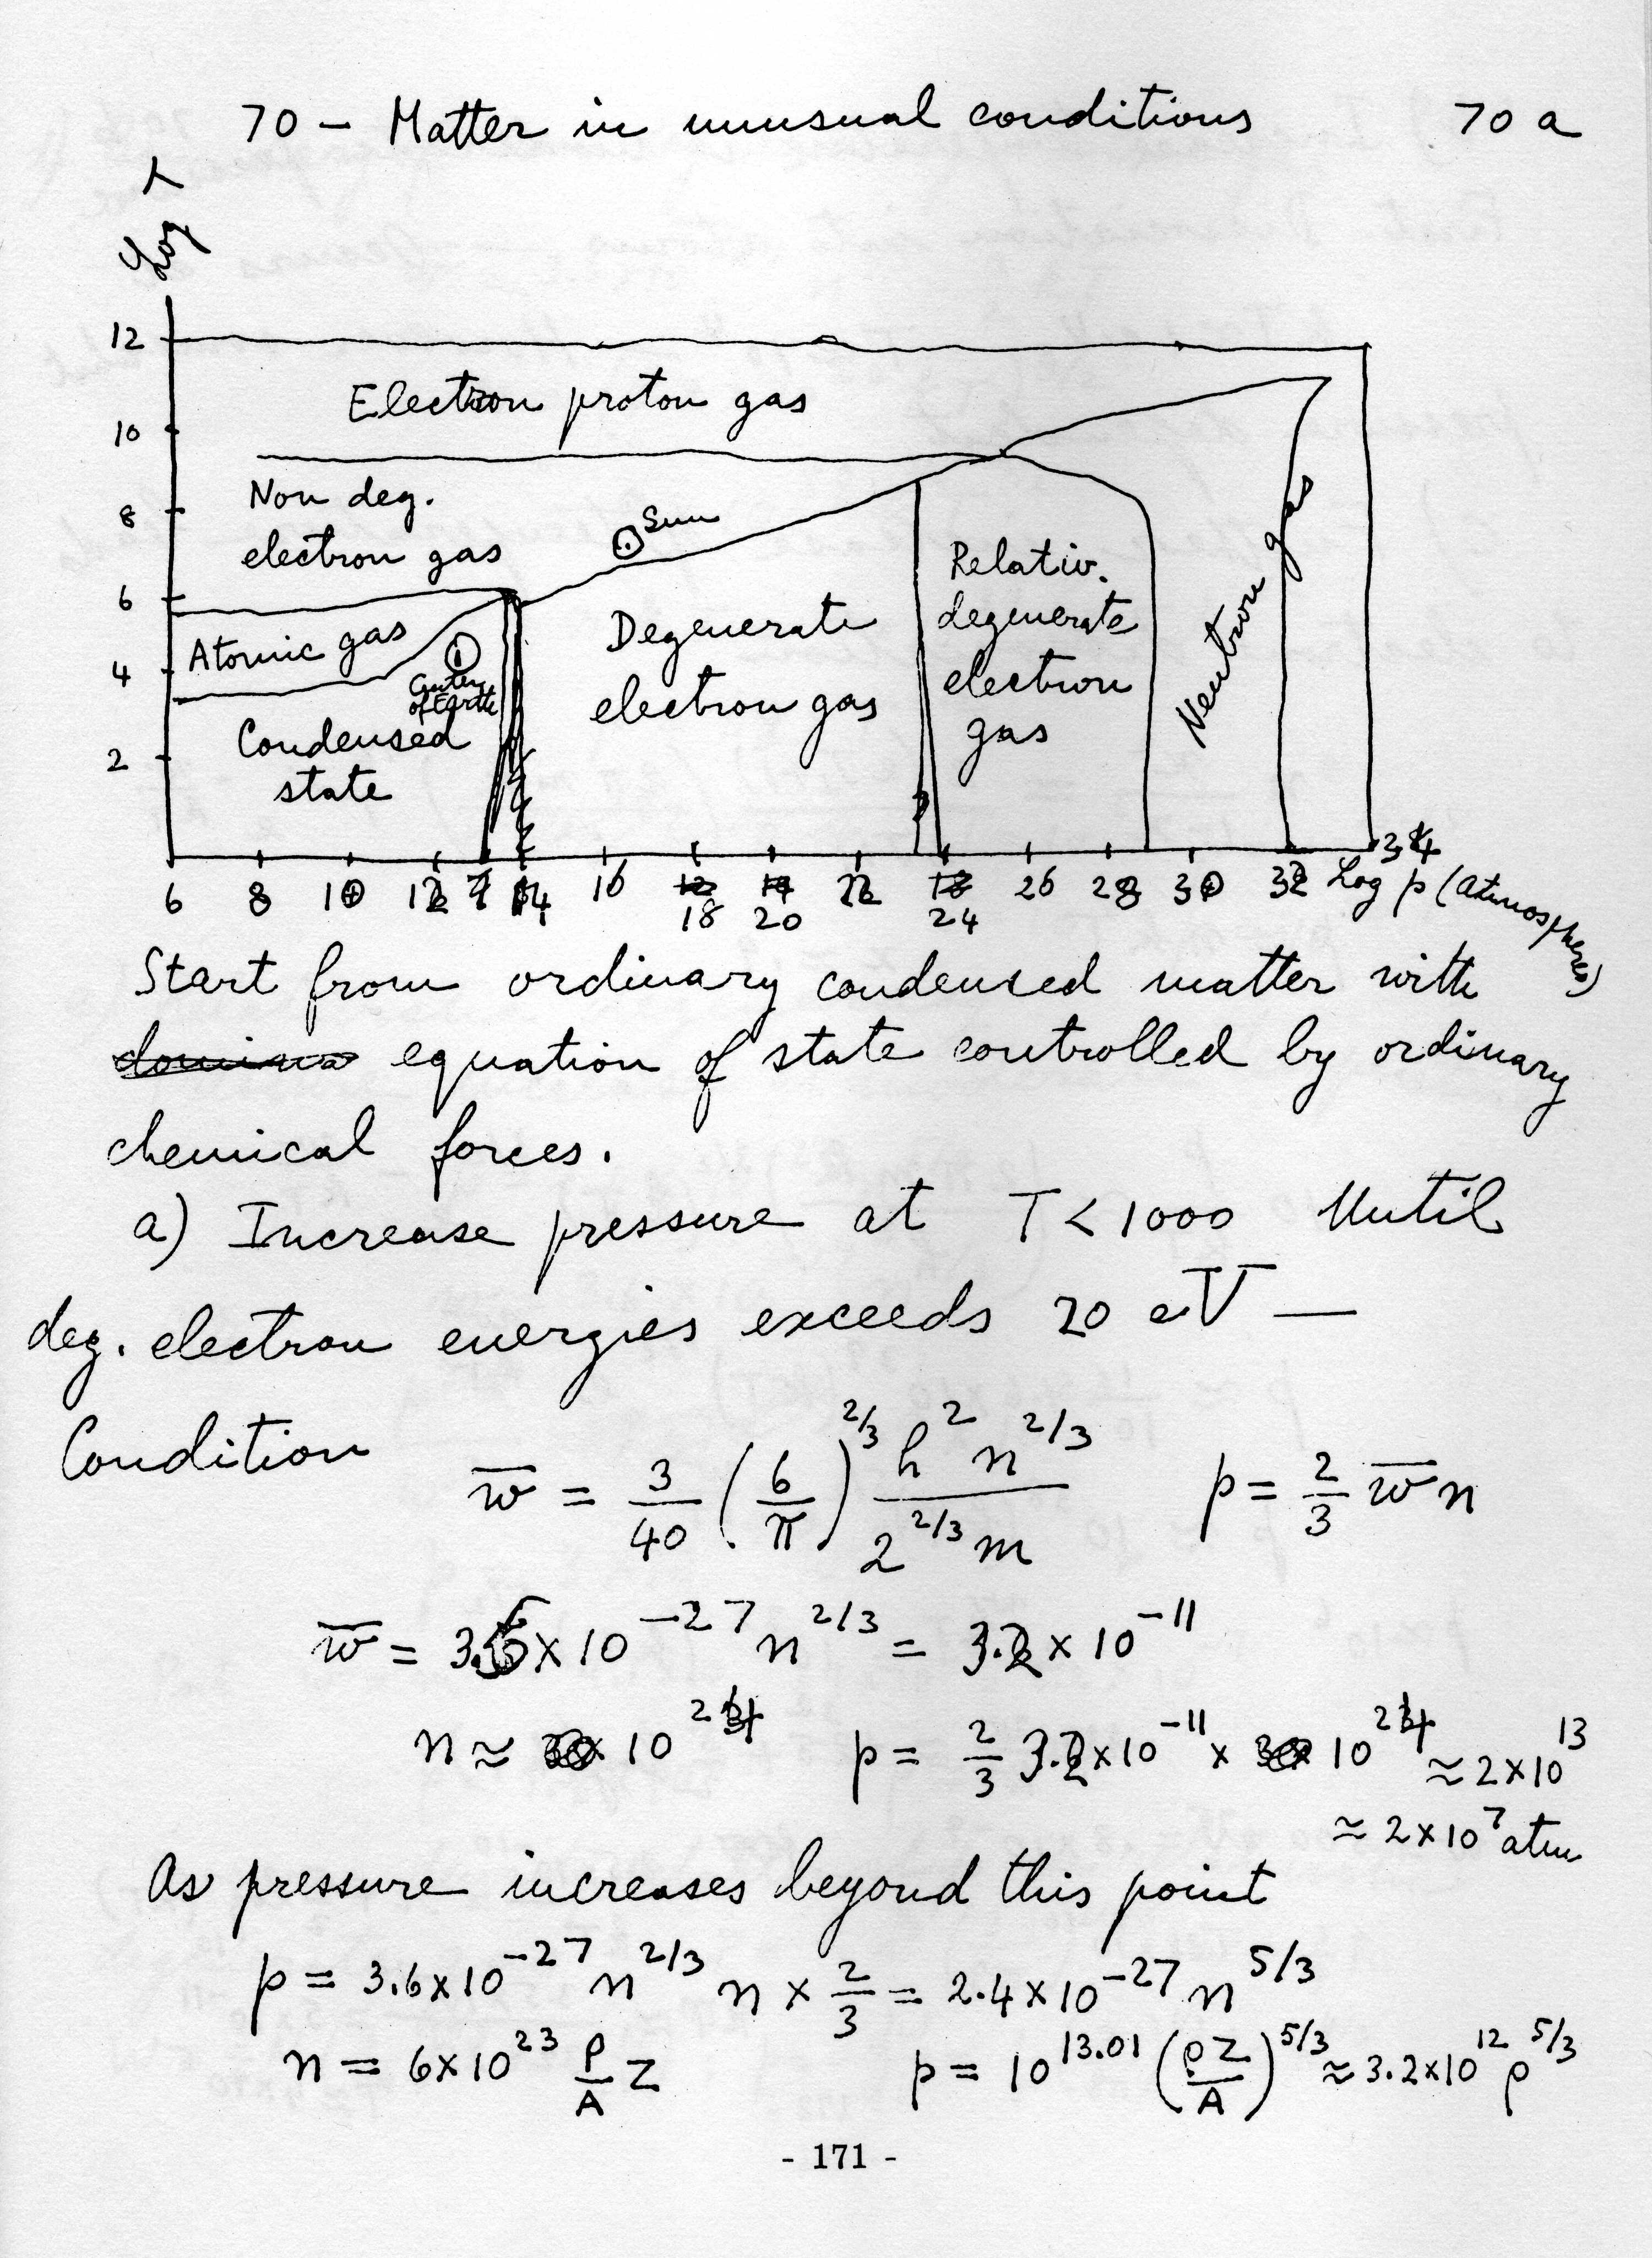 70 – Matter in unusual conditions 70 a
Log T
12
Electron proton gas
10
Non deg.
8
Sun
electron gas
Relativ.
degenerate
electron
gas
6
Degenerate
electron gas
Neutron gas
Atomic gas
4
Center
of Earth
Condensed
state
2
6 8 10 12 14 16 22 26 28 30 32 34 Log p (atmospheres)
18 20 24
Start from ordinary condensed matter with
equation of state controlled by ordinary
chemical forces.
a) Increase pressure at T < 1000 Until
deg. electron energies exceeds 20 eV —
Condition w̄ = 3/40 (6/π)^2/3 h^2 n^2/3 / 2^2/3 m p = 2/3 w̄ n
w̄ = 3.6 × 10^-27 n^2/3 = 3.2 × 10^-11
n ≈ 10^24 p = 2/3 3.2 × 10^-11 × 10^24 ≈ 2 × 10^13
≈ 2 × 10^7 atm
As pressure increases beyond this point
p = 3.6 × 10^-27 n^2/3 n × 2/3 = 2.4 × 10^-27 n^5/3
n = 6 × 10^23 ρ/A Z p = 10^13.01 (ρZ/A)^5/3 ≈ 3.2 × 10^12 ρ^5/3
- 171 -